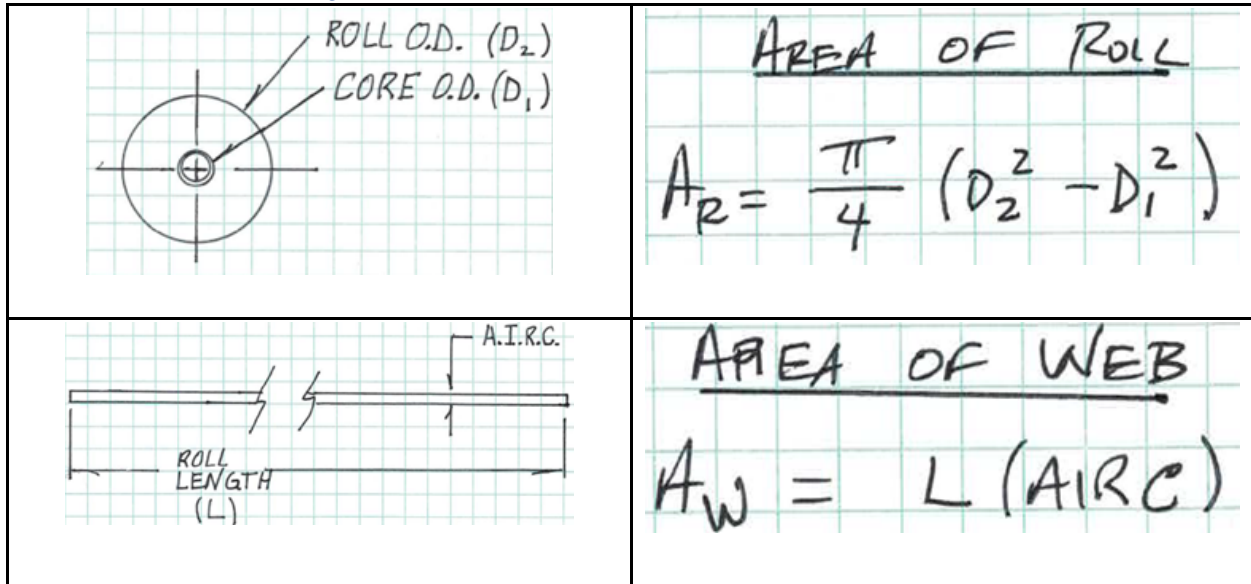 ROLL O.D. (D₂)
CORE O.D. (D₁)
AREA OF ROLL
A_R = π/4 (D₂² - D₁²)
A.I.R.C.
ROLL
LENGTH
(L)
AREA OF WEB
A_W = L (AIRC)